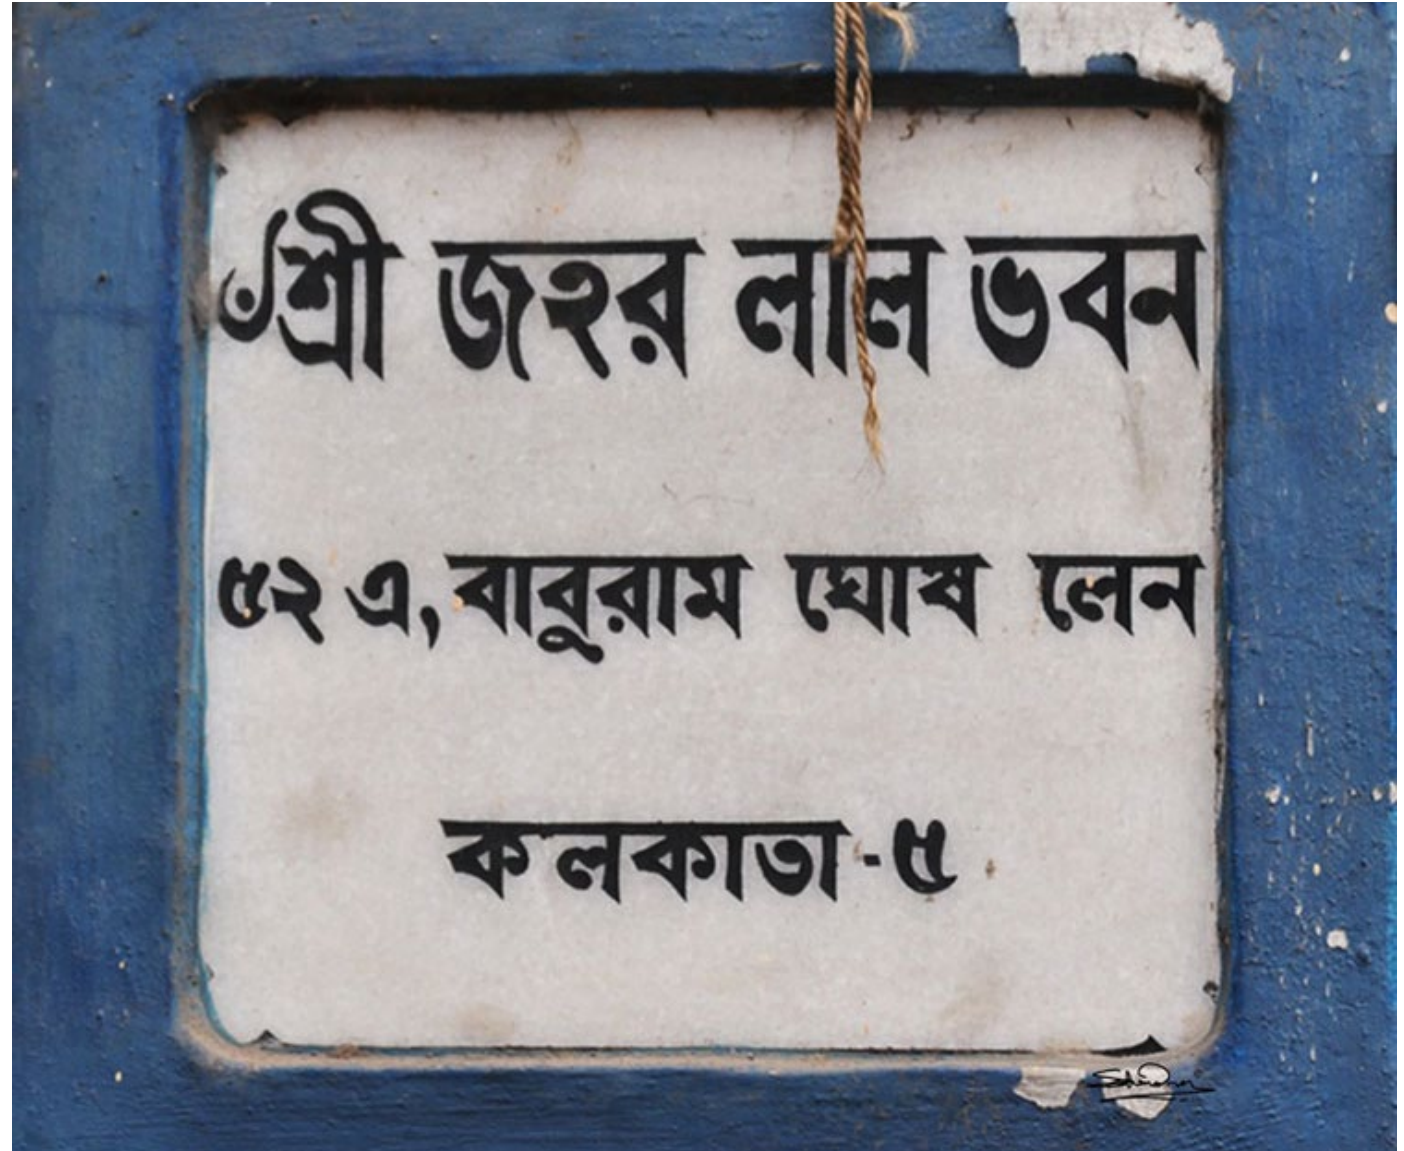 ঁশ্রী জহর লাল ভবন
৫২ এ, বাবুরাম ঘোষ লেন
কলকাতা - ৫